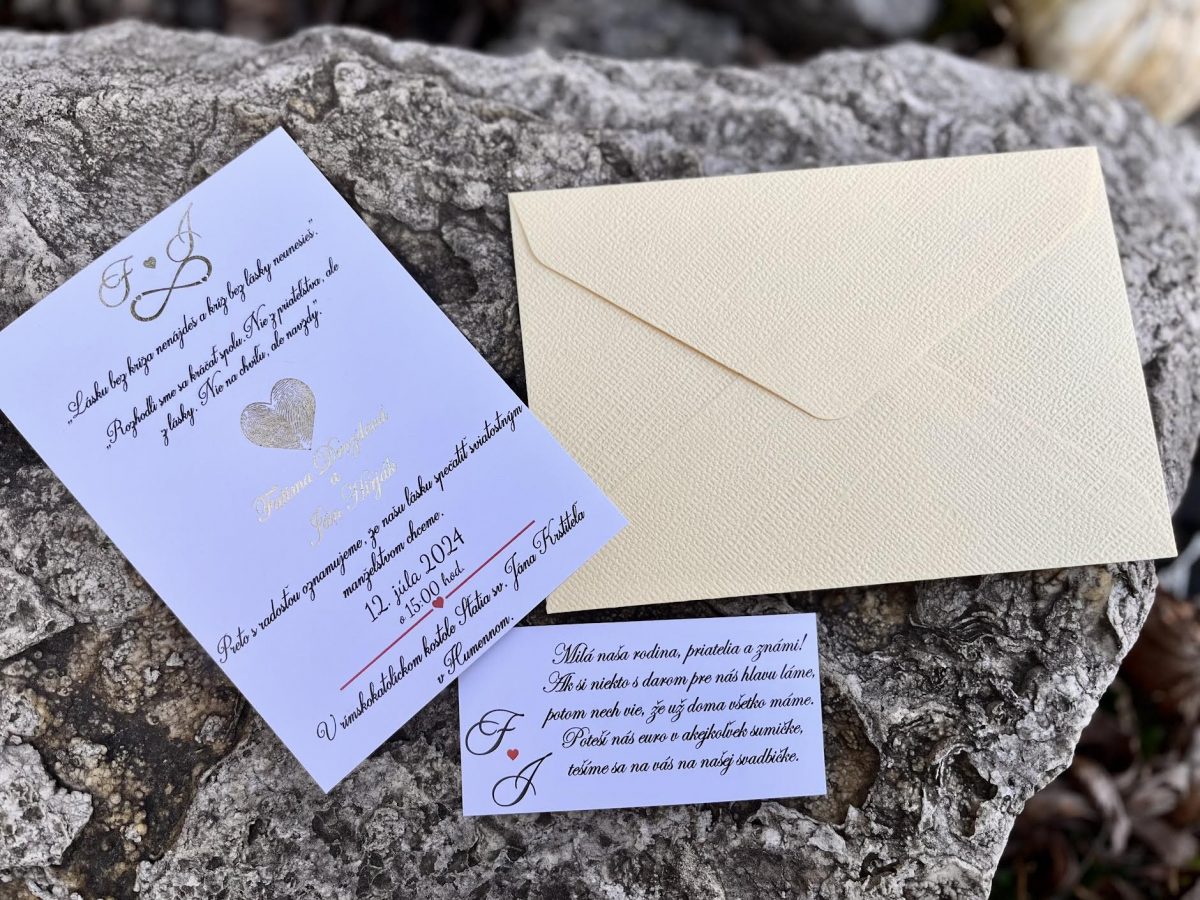 F J
„Lásku bez kríža nenájdeš a kríž bez lásky neunesieš.“
„Rozhodli sme sa kráčať spolu. Nie z priateľstva, ale
z lásky. Nie na chvíľu, ale navždy.“
a
Ján
Preto s radosťou oznamujeme, že našu lásku spečatiť sviatostným
manželstvom chceme.
12. júla 2024
o 15:00 hod.
V rímskokatolíckom kostole Sťatia sv. Jána Krstiteľa
v Humennom.
Milá naša rodina, priatelia a známi!
Ak si niekto s darom pre nás hlavu láme,
potom nech vie, že už doma všetko máme.
Poteší nás euro v akejkoľvek sumičke,
tešíme sa na vás na našej svadbičke.
F
J